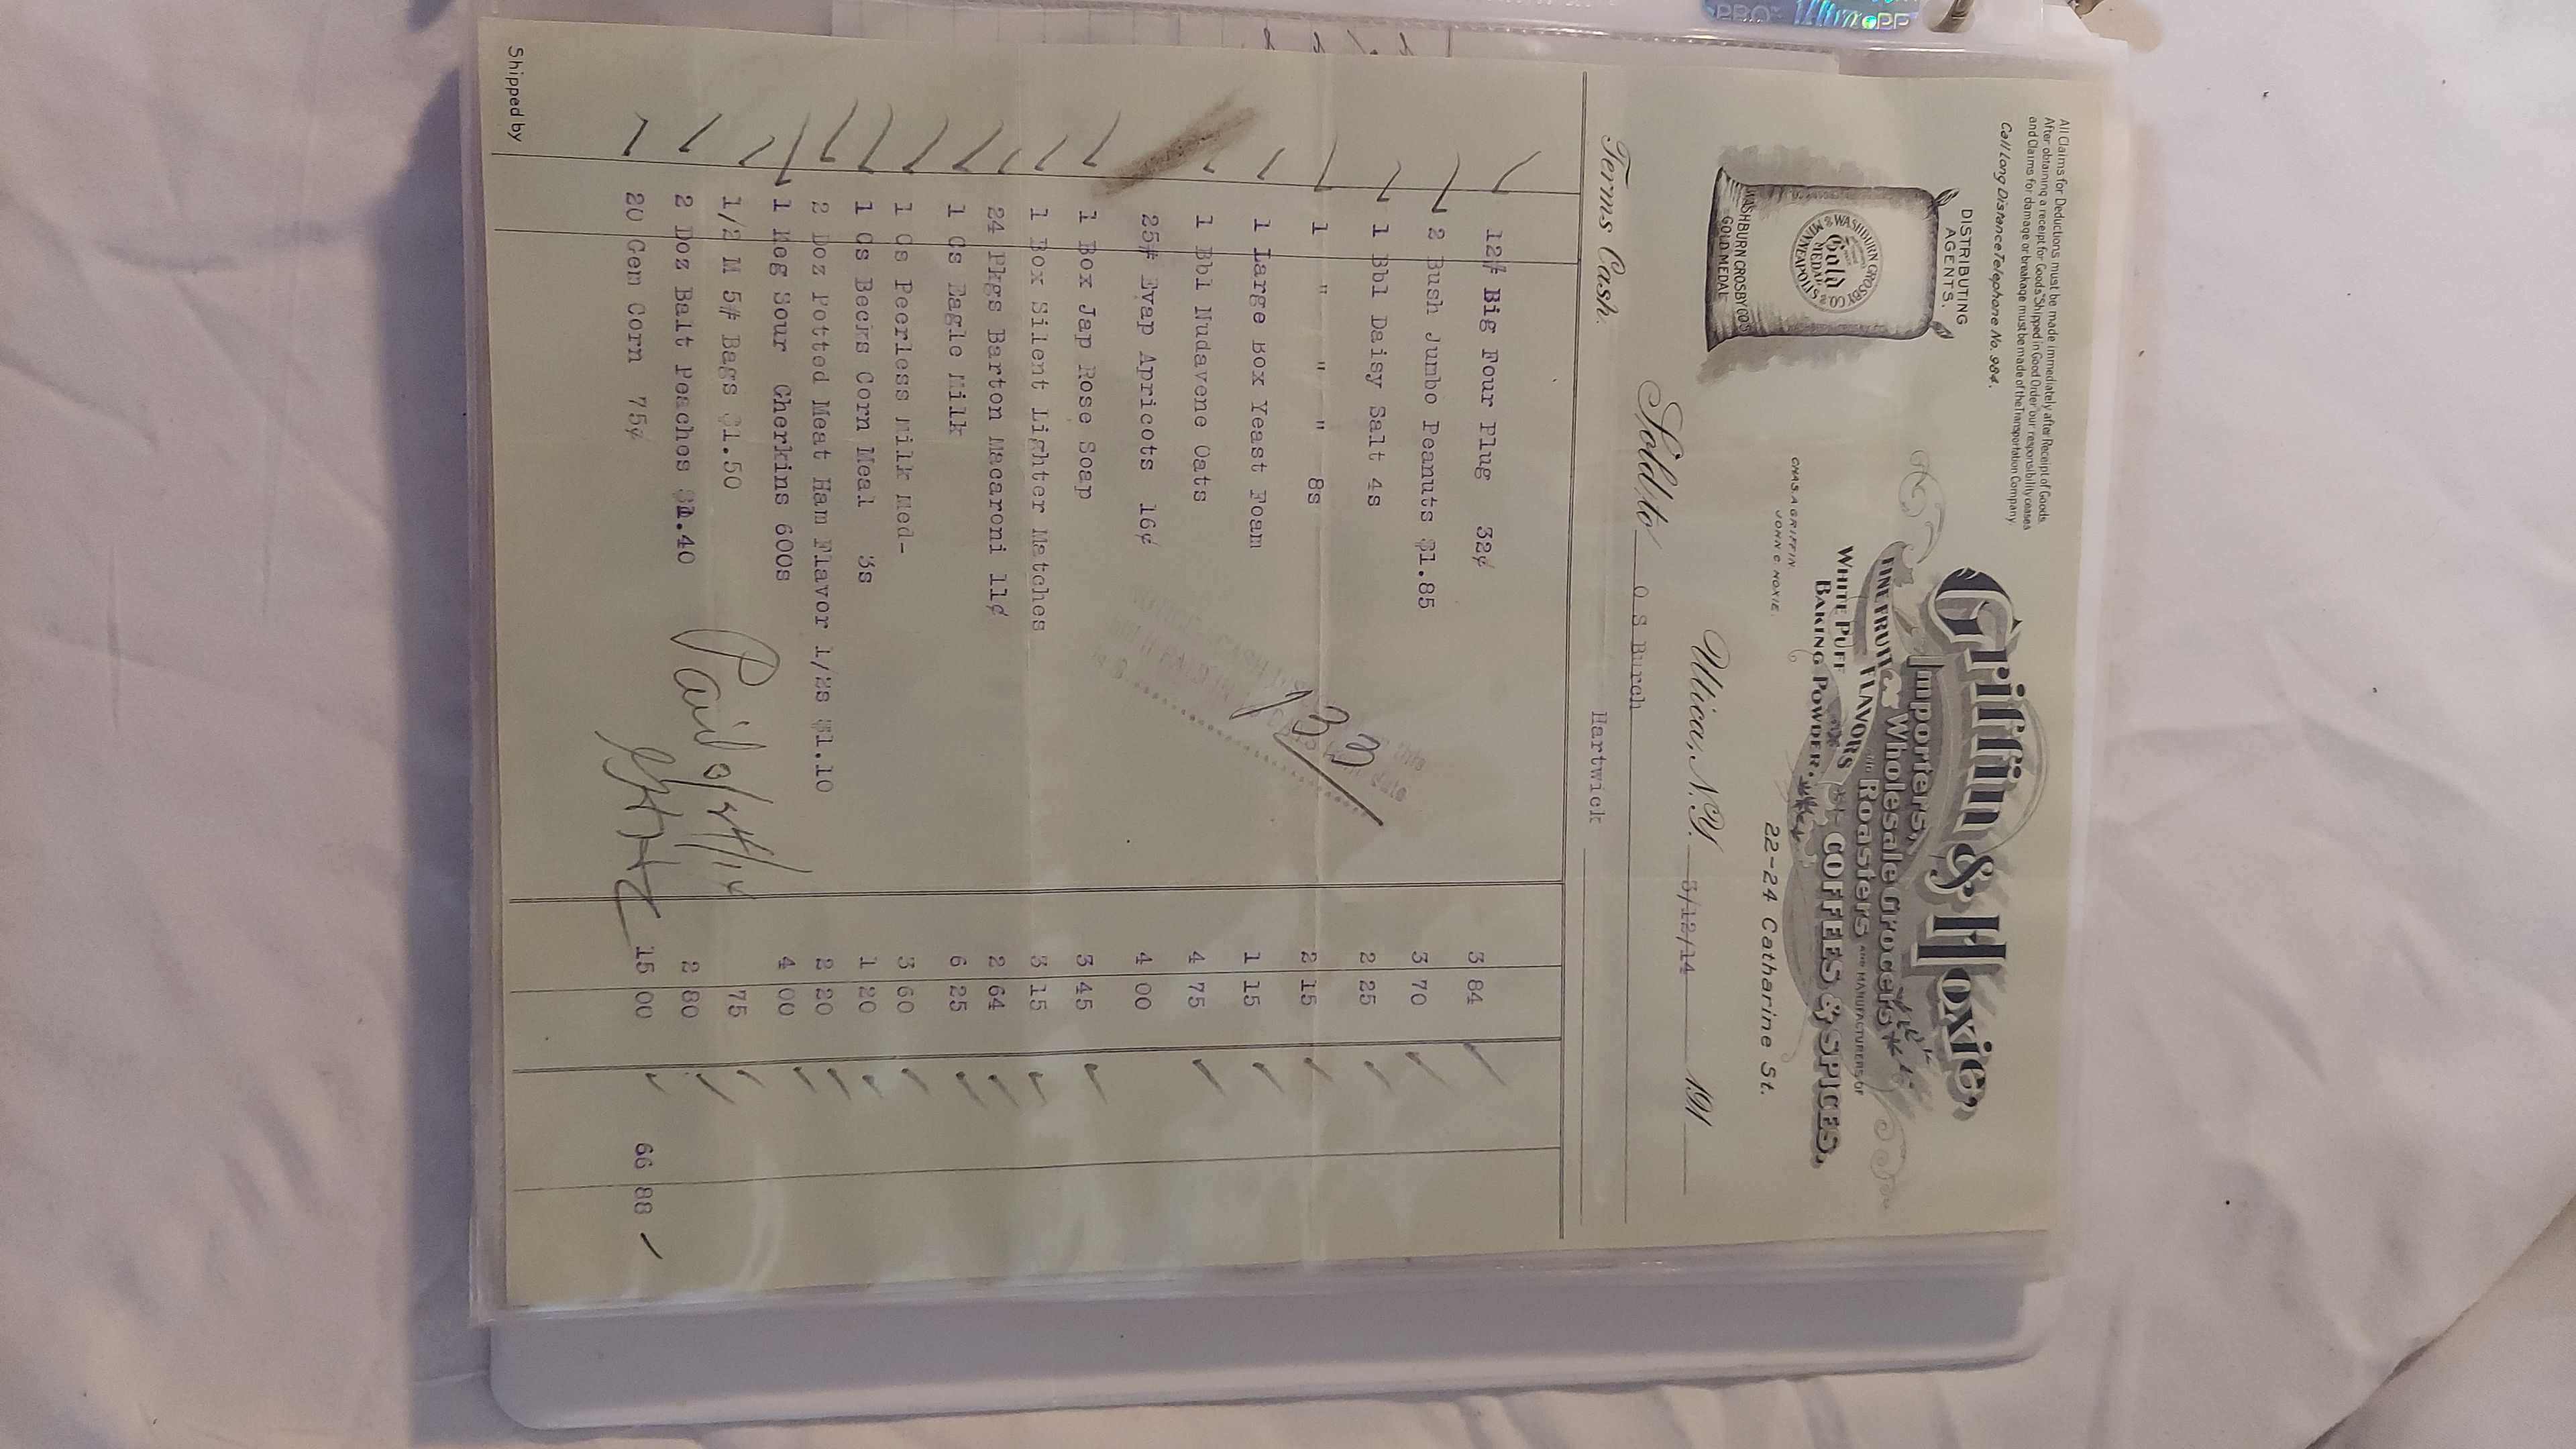 All Claims for Deductions must be made immediately after Receipt of Goods.
After obtaining a receipt for Goods "Shipped in Good Order" our responsibility ceases
and Claims for damage or breakage must be made of the Transportation Company.
Call Long Distance Telephone No. 984.
DISTRIBUTING
AGENTS.
WASHBURN CROSBY CO.
Gold
MEDAL
MINNEAPOLIS
WASHBURN CROSBY CO'S
GOLD MEDAL
Griffin & Hoxie,
Importers,
Wholesale Grocers
FINE FRUIT FLAVORS AND Roasters AND MANUFACTURERS OF
WHITE PUFF
BAKING POWDER, COFFEES & SPICES,
CHAS. A GRIFFIN
JOHN C HOXIE
22-24 Catharine St.
Utica, N.Y. 3/12/14 191
Sold to O S Burch
Hartwick
Terms Cash.
12# Big Four Plug 32¢ 3 84
2 Bush Jumbo Peanuts $1.85 3 70
1 Bbl Daisy Salt 4s 2 25
1 " " " 8s 2 15
1 Large Box Yeast Foam 1 15
1 Bbl Nudavene Oats 4 75
25# Evap Apricots 16¢ 4 00
1 Box Jap Rose Soap 3 45
1 Box Silent Lighter Matches 3 15
24 Pkgs Barton Macaroni 11¢ 2 64
1 Cs Eagle Milk 6 25
1 Cs Peerless Milk Med- 3 60
1 Cs Becks Corn Meal 3s 1 20
2 Doz Potted Meat Ham Flavor 1/2s $1.10 2 20
1 Keg Sour Gherkins 600s 4 00
1/2 M 5# Bags $1.50 75
2 Doz Balt Peaches $1.40 2 80
20 Gem Corn 75¢ 15 00 66 88
Paid
Shipped by